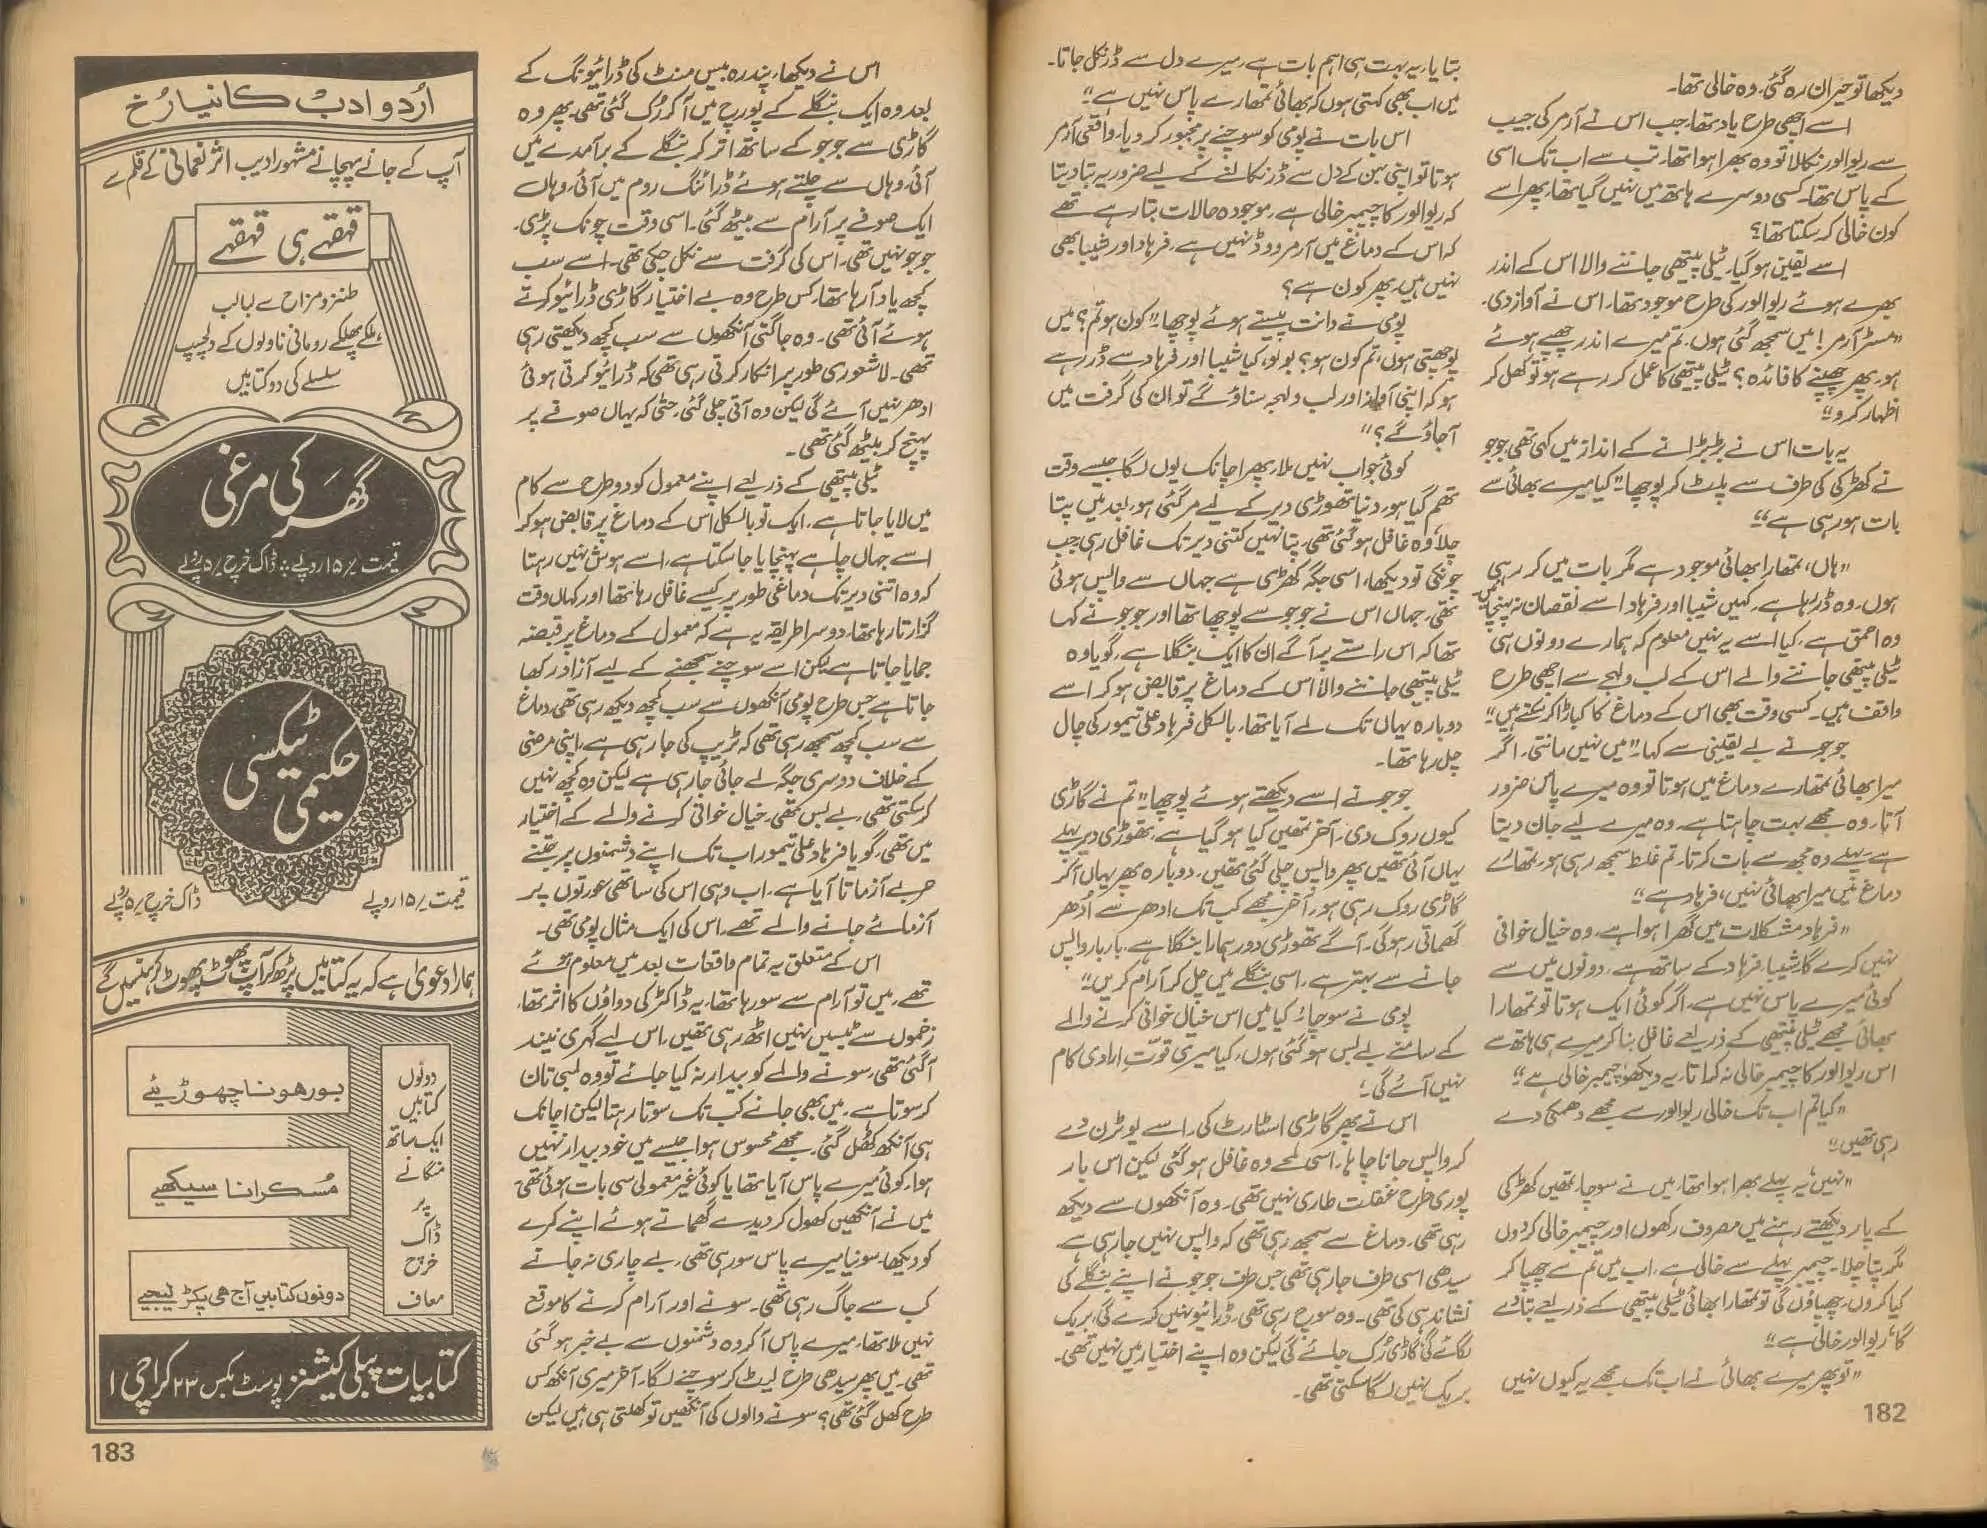 دیکھا تو حیران رہ گئی۔ وہ خالی تھا۔
اسے اچھی طرح یاد تھا، جب اس نے آرمر کی جیب
سے ریوالور نکالا تو وہ بھرا ہوا تھا۔ تب سے اب تک اسی
کے پاس تھا۔ کسی دوسرے ہاتھ میں نہیں گیا تھا، پھر اسے
کون خالی کر سکتا تھا؟
اسے یقین ہو گیا۔ ٹیلی پیتھی جاننے والا اس کے اندر
بھرے ہوئے ریوالور کی طرح موجود تھا۔ اس نے آواز دی۔
"مسٹر آرمر! میں سمجھ گئی ہوں۔ تم میرے اندر چھپے ہوئے
ہو۔ پھر چھپنے کا فائدہ؟ ٹیلی پیتھی کا عمل کر رہے ہو تو کھل کر
اظہار کرو۔"
یہ بات اس نے بڑبڑانے کے انداز میں کہی تھی۔ جوجو
نے کھڑکی کی طرف سے پلٹ کر پوچھا۔ "کیا میرے بھائی سے
بات ہو رہی ہے؟"
"ہاں، تمھارا بھائی موجود ہے مگر بات نہیں کر رہی
ہوں۔ وہ ڈر رہا ہے۔ کہیں شیبا اور فرہاد اسے نقصان نہ پہنچائیں۔
وہ احمق ہے۔ کیا اسے یہ نہیں معلوم کہ ہمارے دونوں ہی
ٹیلی پیتھی جاننے والے اس کے لب و لہجے سے اچھی طرح
واقف ہیں۔ کسی وقت بھی اس کے دماغ کا کباڑا کر سکتے ہیں۔"
جوجو نے بے یقینی سے کہا۔ "میں نہیں مانتی۔ اگر
میرا بھائی تمھارے دماغ میں ہوتا تو وہ میرے پاس ضرور
آتا۔ وہ مجھے بہت چاہتا ہے۔ وہ میرے لیے جان دیتا
ہے۔ پہلے وہ مجھ سے بات کرتا۔ تم غلط سمجھ رہی ہو، تمھارے
دماغ میں میرا بھائی نہیں، فرہاد ہے۔"
"فرہاد مشکلات میں گھرا ہوا ہے، وہ خیال خوانی
نہیں کرے گا۔ شیبا، فرہاد کے ساتھ ہے۔ دونوں میں سے
کوئی میرے پاس نہیں ہے۔ اگر کوئی ایک ہوتا تو تمھارا
بھائی مجھے ٹیلی پیتھی کے ذریعے غافل بنا کر میرے ہی ہاتھ سے
اس ریوالور کا چیمبر خالی نہ کراتا۔ یہ دیکھو، چیمبر خالی ہے۔"
"کیا تم اب تک خالی ریوالور سے مجھے دھمکی دے
رہی تھیں۔"
"نہیں، یہ پہلے بھرا ہوا تھا۔ میں نے سوچا، تمھیں کھڑکی
کے پار دیکھتے رہنے میں مصروف رکھوں اور چیمبر خالی کر دوں
مگر پتا چلا۔ چیمبر پہلے سے خالی ہے، اب میں تم سے چھپا کر
کیا کروں۔ چھپاؤں گی تو تمھارا بھائی ٹیلی پیتھی کے ذریعے بتا دے
گا، ریوالور خالی ہے۔"
"تو پھر میرے بھائی نے اب تک مجھے یہ کیوں نہیں
182
بتایا۔ یہ بہت ہی اہم بات ہے۔ میرے دل سے ڈر نکل جاتا۔
میں اب بھی کہتی ہوں کہ بھائی تمھارے پاس نہیں ہے۔"
اس بات نے پومی کو سوچنے پر مجبور کر دیا۔ واقعی آرمر
ہوتا تو اپنی بہن کے دل سے ڈر نکالنے کے لیے ضرور یہ بتا دیتا
کہ ریوالور کا چیمبر خالی ہے۔ موجودہ حالات بتا رہے تھے
کہ اس کے دماغ میں آرمر ووڈ نہیں ہے۔ فرہاد اور شیبا بھی
نہیں ہیں۔ پھر کون ہے؟
پومی نے دانت پیستے ہوئے پوچھا۔ "کون ہو تم؟ میں
پوچھتی ہوں، تم کون ہو؟ بولو، کیا شیبا اور فرہاد سے ڈر رہے
ہو کہ اپنی آواز اور لب و لہجہ سناؤ گے تو ان کی گرفت میں
آ جاؤ گے؟"
کوئی جواب نہیں ملا۔ پھر اچانک یوں لگا جیسے وقت
تھم گیا ہو۔ دنیا تھوڑی دیر کے لیے مر گئی ہو۔ بعد میں پتا
چلا، وہ غافل ہو گئی تھی۔ پتا نہیں کتنی دیر تک غافل رہی جب
چونکی تو دیکھا، اسی جگہ کھڑی ہے جہاں سے واپس ہوئی
تھی۔ جہاں اس نے جوجو سے پوچھا تھا اور جوجو نے کہا
تھا کہ اس راستے پر آگے ان کا ایک بنگلا ہے، گویا وہ
ٹیلی پیتھی جاننے والا اس کے دماغ پر قابض ہو کر اسے
دوبارہ یہاں تک لے آیا تھا۔ بالکل فرہاد علی تیمور کی چال
چل رہا تھا۔
جوجو نے اسے دیکھتے ہوئے پوچھا۔ "تم نے گاڑی
کیوں روک دی، آخر تمھیں کیا ہو گیا ہے۔ تھوڑی دیر پہلے
یہاں آئی تھیں پھر واپس چلی گئی تھیں۔ دوبارہ پھر یہاں آ کر
گاڑی روک رہی ہو۔ آخر مجھے کب تک ادھر سے اُدھر
گھماتی رہو گی۔ آگے تھوڑی دور ہمارا بنگلا ہے۔ بار بار واپس
جانے سے بہتر ہے۔ اسی بنگلے میں چل کر آرام کریں۔"
پومی نے سوچا، "کیا میں اس خیال خوانی کرنے والے
کے سامنے بے بس ہو گئی ہوں، کیا میری قوتِ ارادی کام
نہیں آئے گی؟
اس نے پھر گاڑی اسٹارٹ کی۔ اسے یو ٹرن دے
کر واپس جانا چاہا۔ اسی لمحے وہ غافل ہو گئی لیکن اس بار
پوری طرح غفلت طاری نہیں تھی۔ وہ آنکھوں سے دیکھ
رہی تھی۔ دماغ سے سمجھ رہی تھی کہ واپس نہیں جا رہی ہے
سیدھی اسی طرف جا رہی تھی جس طرف جوجو نے اپنے بنگلے کی
نشاندہی کی تھی۔ وہ سوچ رہی تھی، ڈرائیو نہیں کرے گی، بریک
لگائے گی، گاڑی رُک جائے گی لیکن وہ اپنے اختیار میں نہیں تھی۔
بریک نہیں لگا سکتی تھی۔
اس نے دیکھا، پندرہ بیس منٹ کی ڈرائیونگ کے
بعد وہ ایک بنگلے کے پورچ میں آ کر رُک گئی تھی۔ پھر وہ
گاڑی سے جوجو کے ساتھ اتر کر بنگلے کے برآمدے میں
آئی۔ وہاں سے چلتے ہوئے ڈرائنگ روم میں آئی۔ وہاں
ایک صوفے پر آرام سے بیٹھ گئی۔ اسی وقت چونک پڑی۔
جوجو نہیں تھی۔ اس کی گرفت سے نکل چکی تھی۔ اسے سب
کچھ یاد آ رہا تھا۔ کس طرح وہ بے اختیار گاڑی ڈرائیو کرتے
ہوئے آئی تھی۔ وہ جاگتی آنکھوں سے سب کچھ دیکھتی رہی
تھی۔ لاشعوری طور پر انکار کرتی رہی تھی کہ ڈرائیو کرتی ہوئی
ادھر نہیں آئے گی لیکن وہ آتی چلی گئی۔ حتیٰ کہ یہاں صوفے پر
پہنچ کر بیٹھ گئی تھی۔
ٹیلی پیتھی کے ذریعے اپنے معمول کو دو طرح سے کام
میں لایا جاتا ہے۔ ایک تو بالکل اس کے دماغ پر قابض ہو کر
اسے جہاں چاہے پہنچایا جا سکتا ہے۔ اسے ہوش نہیں رہتا
کہ وہ اتنی دیر تک دماغی طور پر کیسے غافل رہا تھا اور کہاں وقت
گزارتا رہا تھا۔ دوسرا طریقہ یہ ہے کہ معمول کے دماغ پر قبضہ
جمایا جاتا ہے لیکن اسے سوچنے سمجھنے کے لیے آزاد رکھا
جاتا ہے جس طرح پومی آنکھوں سے سب کچھ دیکھ رہی تھی، دماغ
سے سب کچھ سمجھ رہی تھی کہ ٹریپ کی جا رہی ہے، اپنی مرضی
کے خلاف دوسری جگہ لے جائی جا رہی ہے لیکن وہ کچھ نہیں
کر سکتی تھی۔ بے بس تھی۔ خیال خوانی کرنے والے کے اختیار
میں تھی، گویا فرہاد علی تیمور اب تک اپنے دشمنوں پر جتنے
حربے آزماتا آیا ہے، اب وہی اس کی ساتھی عورتوں پر
آزمائے جانے والے تھے۔ اس کی ایک مثال پومی تھی۔
اس کے متعلق یہ تمام واقعات بعد میں معلوم ہوئے
تھے۔ میں تو آرام سے سو رہا تھا۔ یہ ڈاکٹر کی دواؤں کا اثر تھا،
زخموں سے ٹیسیں نہیں اٹھ رہی تھیں۔ اس لیے گہری نیند
آ گئی تھی۔ سونے والے کو بیدار نہ کیا جائے تو وہ لمبی تان
کر سوتا ہے۔ میں بھی جانے کب تک سوتا رہتا لیکن اچانک
ہی آنکھ کھل گئی۔ مجھے محسوس ہوا جیسے میں خود بیدار نہیں
ہوا، کوئی میرے پاس آیا تھا یا کوئی غیر معمولی سی بات ہوئی تھی۔
میں نے آنکھیں کھول کر دیدے گھماتے ہوئے اپنے کمرے
کو دیکھا۔ سونیا میرے پاس سو رہی تھی۔ بے چاری نہ جانے
کب سے جاگ رہی تھی۔ سونے اور آرام کرنے کا موقع
نہیں ملا تھا۔ میرے پاس آ کر وہ دشمنوں سے بے خبر ہو گئی
تھی۔ میں پھر سیدھی طرح لیٹ کر سوچنے لگا۔ آخر میری آنکھ کس
طرح کھل گئی تھی؟ سونے والوں کی آنکھیں تو کھلتی ہی ہیں لیکن
اُردو ادبْ کا نیا رُخ
آپ کے جانے پہچانے مشہور ادیب اثر نعمانی کے قلم سے
قہقہے ہی قہقہے
طنز و مزاح سے لبالب
ہلکے پھلکے رومانی ناولوں کے دلچسپ
سلسلے کی دو کتابیں
گھر کی مرغی
قیمت /۱۵ روپے : ڈاک خرچ /۵ روپے
حکیمی ٹیکسی
قیمت /۱۵ روپے
ڈاک خرچ /۵ روپے
ہمارا دعویٰ ہے کہ یہ کتابیں پڑھ کر آپ پھوٹ پھوٹ کر ہنسیں گے
دونوں
کتابیں
ایک ساتھ
منگانے
پر
ڈاک
خرچ
معاف
بور ھونا چھوڑیئے
مسکرانا سیکھیے
دونوں کتابیں آج ھی پکڑ لیجیے
کتابیات پبلی کیشنز پوسٹ بکس ۲۳ کراچی ۱
183